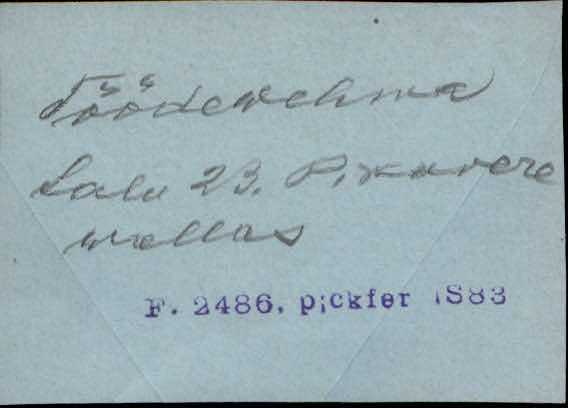 Töödewehma
Talu 23. Pikavere
wallas
F. 2486, pickfer 1883